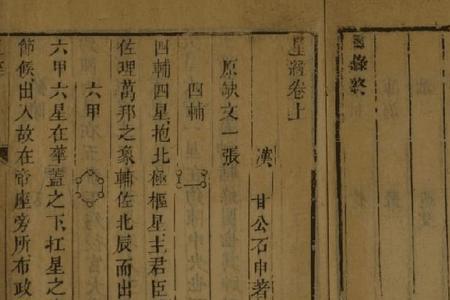 目錄終
星經卷上
漢 甘公石申著
原缺文一張
四輔
四輔四星抱北極樞星主君臣
佐理萬邦之象輔佐北辰而出
六甲
六甲六星在華蓋之下扛星之
節候出入故在帝座旁所布政